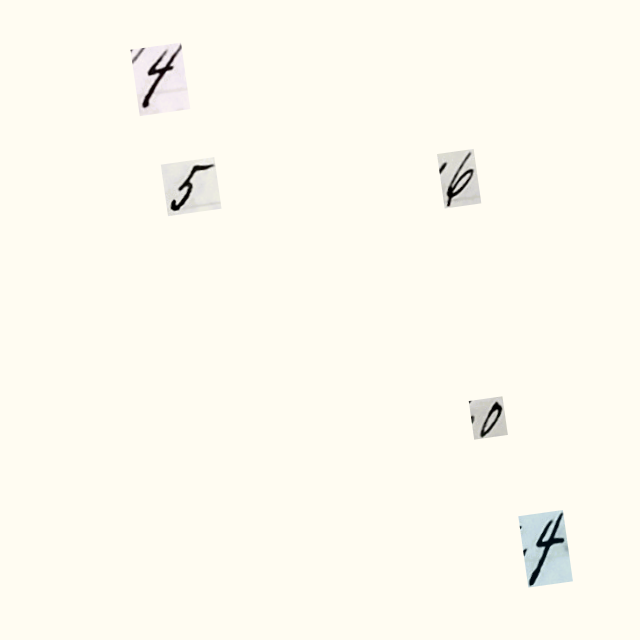 4
5 6
0
4